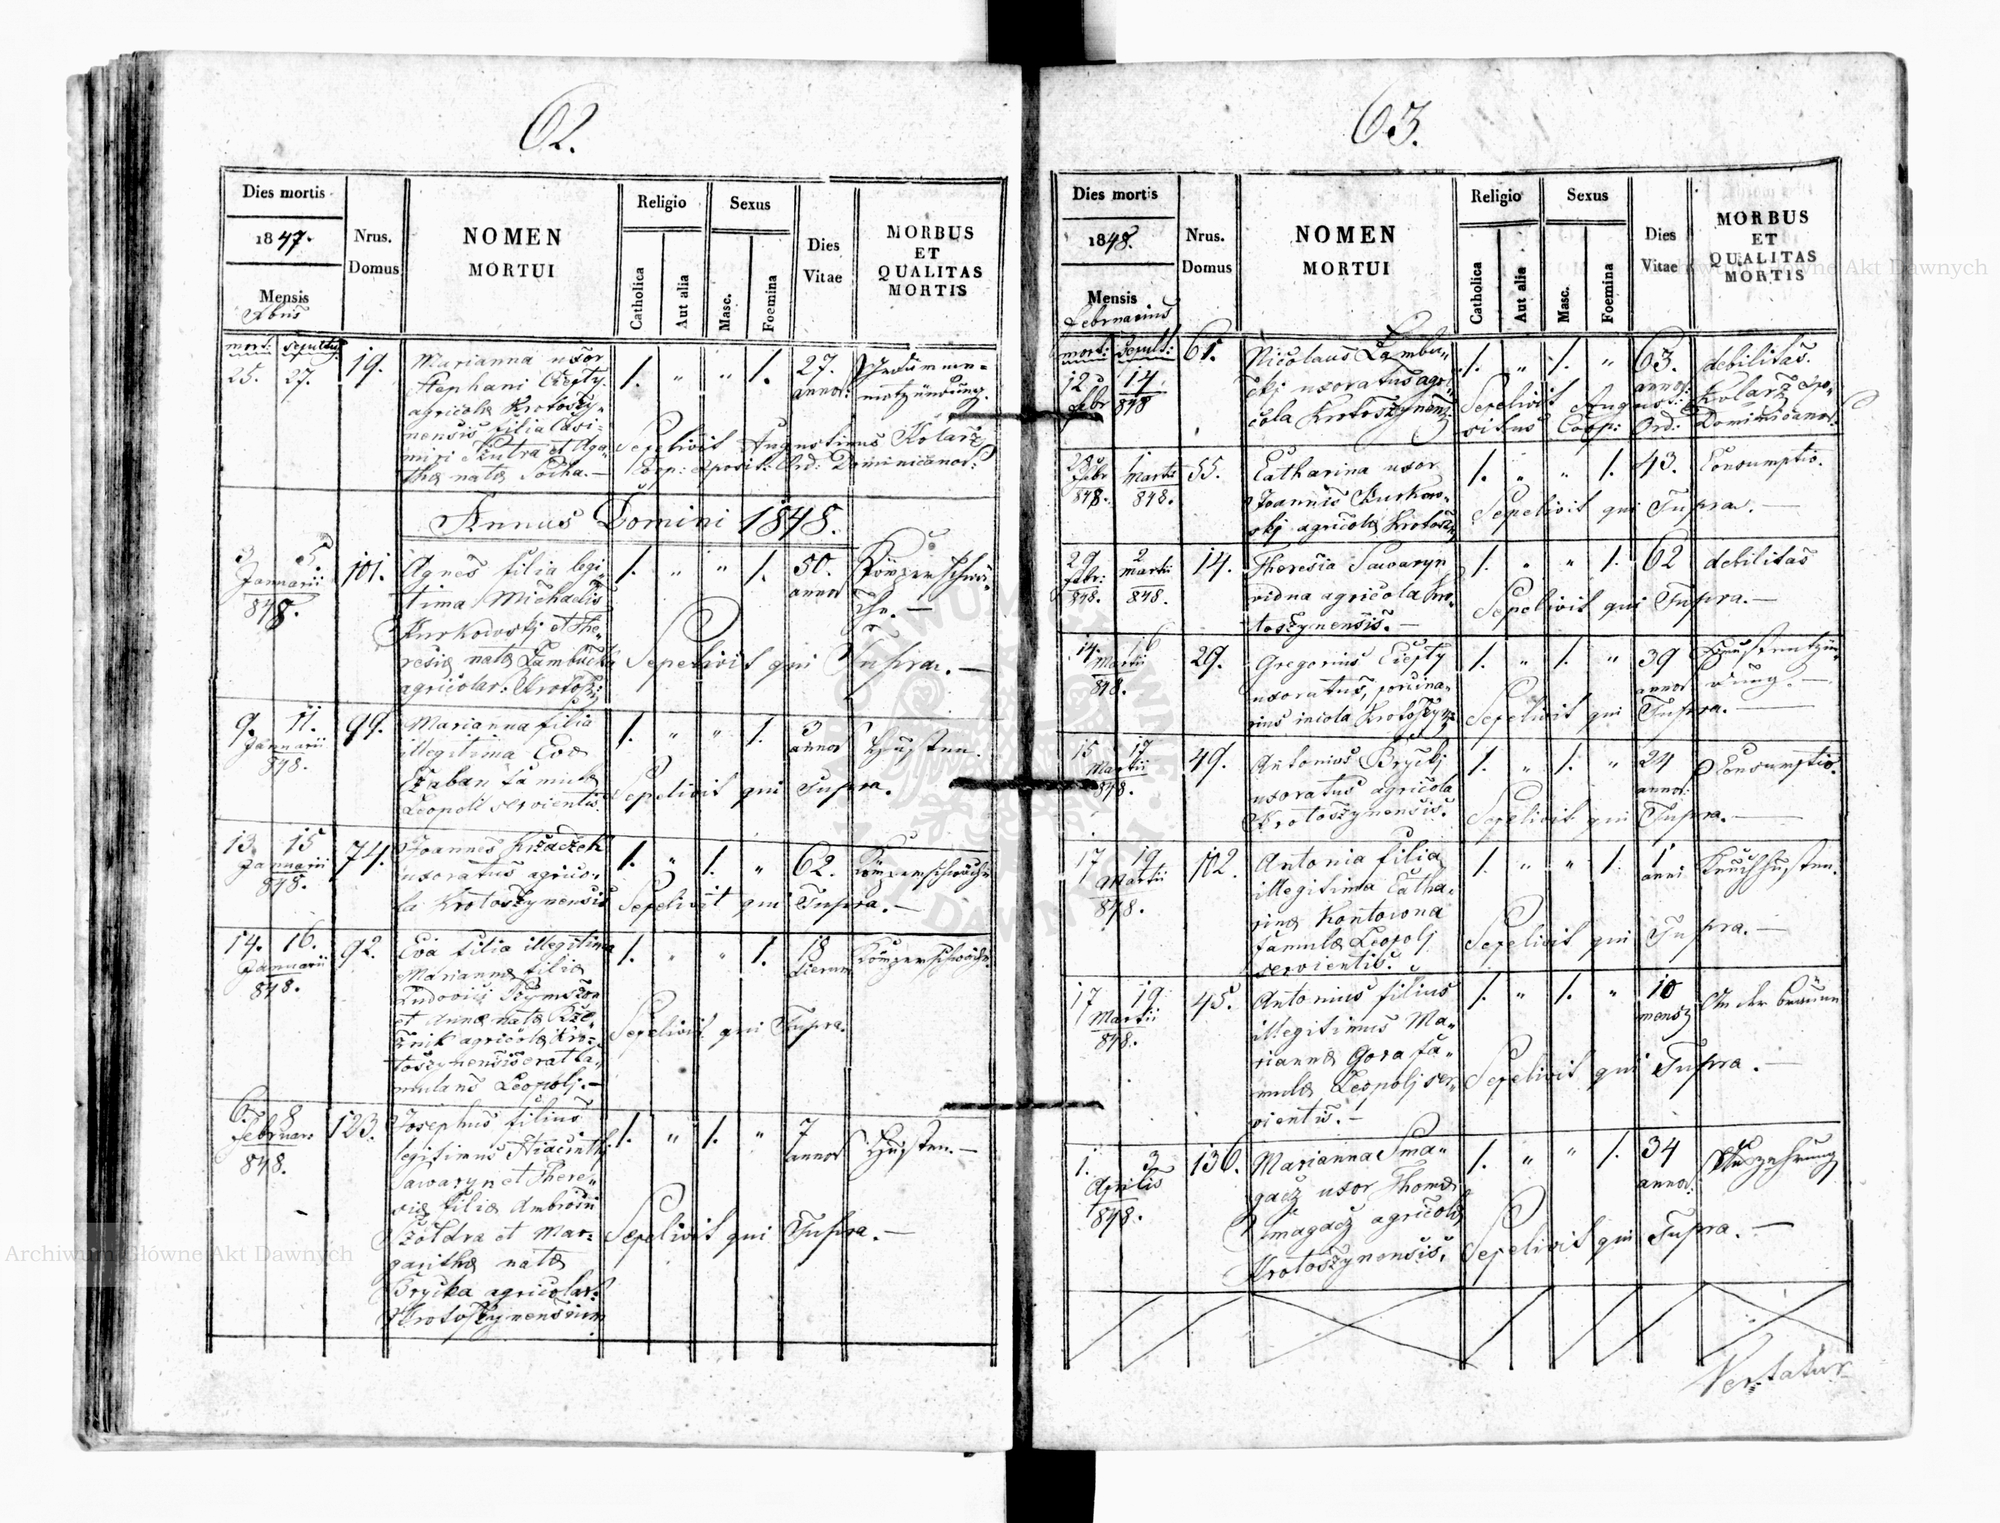 62.
Dies mortis
1847.
Mensis
Xbris
Nrus.
Domus
NOMEN
MORTUI
Religio
Catholica
Aut alia
Sexus
Masc.
Foemina
Dies
Vitae
MORBUS
ET
QUALITAS
MORTIS
mort: sepultus
25. 27.
19.
Marianna uxor
Stephani Ciepty
agricolæ Krotoszy-
nensis filia Casi-
miri Kutra et Aga-
thæ natæ Socha.—
1. " " 1.
27.
annor:
Sepelivit Augustinus Kolarz
Coop: Exposit: Ord: Dominicanor:
Annus Domini 1848.
3 5
Januarii
848.
101.
Agnes filia legi-
tima Michaelis
Kurkowskj et The-
resiæ natæ Lambucka
agricolar: Krotosz:
1. " " 1.
50.
annor
Körperschwä-
che.—
Sepelivit qui Supra.—
9. 11.
Januarii
848.
99.
Marianna filia
illegitima Evæ
Czaban famulæ
Leopoli servientis.
1. " " 1.
3
annor
Husten.
Sepelivit qui Supra.
13. 15
Januarii
848.
74.
Joannes Krzaczek
uxoratus agrico-
la Krotoszynensis
1. " 1. "
62.
Körperschwäche
Sepelivit qui Supra.—
14. 16.
Januarii
848.
92.
Eva filia illegitima
Mariannæ filiæ
Ludovici
et Annæ natæ Rze-
znik agricolæ Kro-
toszynensis erat fa-
mulans Leopolj.—
1. " " 1.
18
dierum
Körperschwäche
Sepelivit qui Supra.
6. 8
Februar:
848.
123.
Josephus filius
legitimus Hiacinthi
Sawaryn et There-
siæ filiæ Ambrosii
Szoldra et Mar-
garithæ natæ
Brycka agricolar:
Krotoszynensium
1. " 1. "
7
annor
Husten.—
Sepelivit qui Supra.—
63.
Dies mortis
1848.
Mensis
Februarius
Nrus.
Domus
NOMEN
MORTUI
Religio
Catholica
Aut alia
Sexus
Masc.
Foemina
Dies
Vitae
MORBUS
ET
QUALITAS
MORTIS
mort: sepult:
12 14
Febr 848
61.
Nicolaus Lambu-
ckj uxoratus agri-
cola Krotoszynens:
1. " 1. "
63.
annor:
debilitas.
Sepelivit August: Kolarz Expo-
situs Coop: Ord: Dominicanor:
28 1
Febr Martii
848. 848.
55.
Catharina uxor
Joannis Kurkow-
skj agricolæ Krotosz:
1. " " 1.
43.
Consumptio.
Sepelivit qui Supra.—
29 2
Febr: Martii
848. 848.
14.
Theresia Sawaryn
vidua agricola Kro-
toszynensis.—
1. " " 1.
62
debilitas
Sepelivit qui Supra.—
14. 16
Martii
848.
29.
Gregorius Ciepty
uxoratus,
rius incola Krotoszyn:
1. " 1. "
39
annor
Sepelivit qui Supra.—
15 17
Martii
848.
49.
Antonius Bryckj
uxoratus agricola
Krotoszynensis.
1. " 1. "
24
annor:
Consumptio.
Sepelivit qui Supra.—
17 19
Martii
848.
102.
Antonia filia
illegitima Catha-
rinæ Kontowna
famulæ Leopolj
servientis.
1. " " 1.
1
anni
Keuchhusten.
Sepelivit qui Supra.—
17 19
Martii
848.
45.
Antonius filius
illegitimus Ma-
riannæ Gora fa-
mulæ Leopolj ser-
vientis.—
1. " 1. "
10
mens:
An der Bräune
Sepelivit qui Supra.—
1. 3
Aprilis
848.
136.
Marianna Sma-
gacz uxor Thomæ
Smagacz agricolæ
Krotoszynensis.
1. " " 1.
34
annor:
Auszehrung
Sepelivit qui Supra.—
Vertatur
Archiwum Główne Akt Dawnych
Archiwum Główne Akt Dawnych